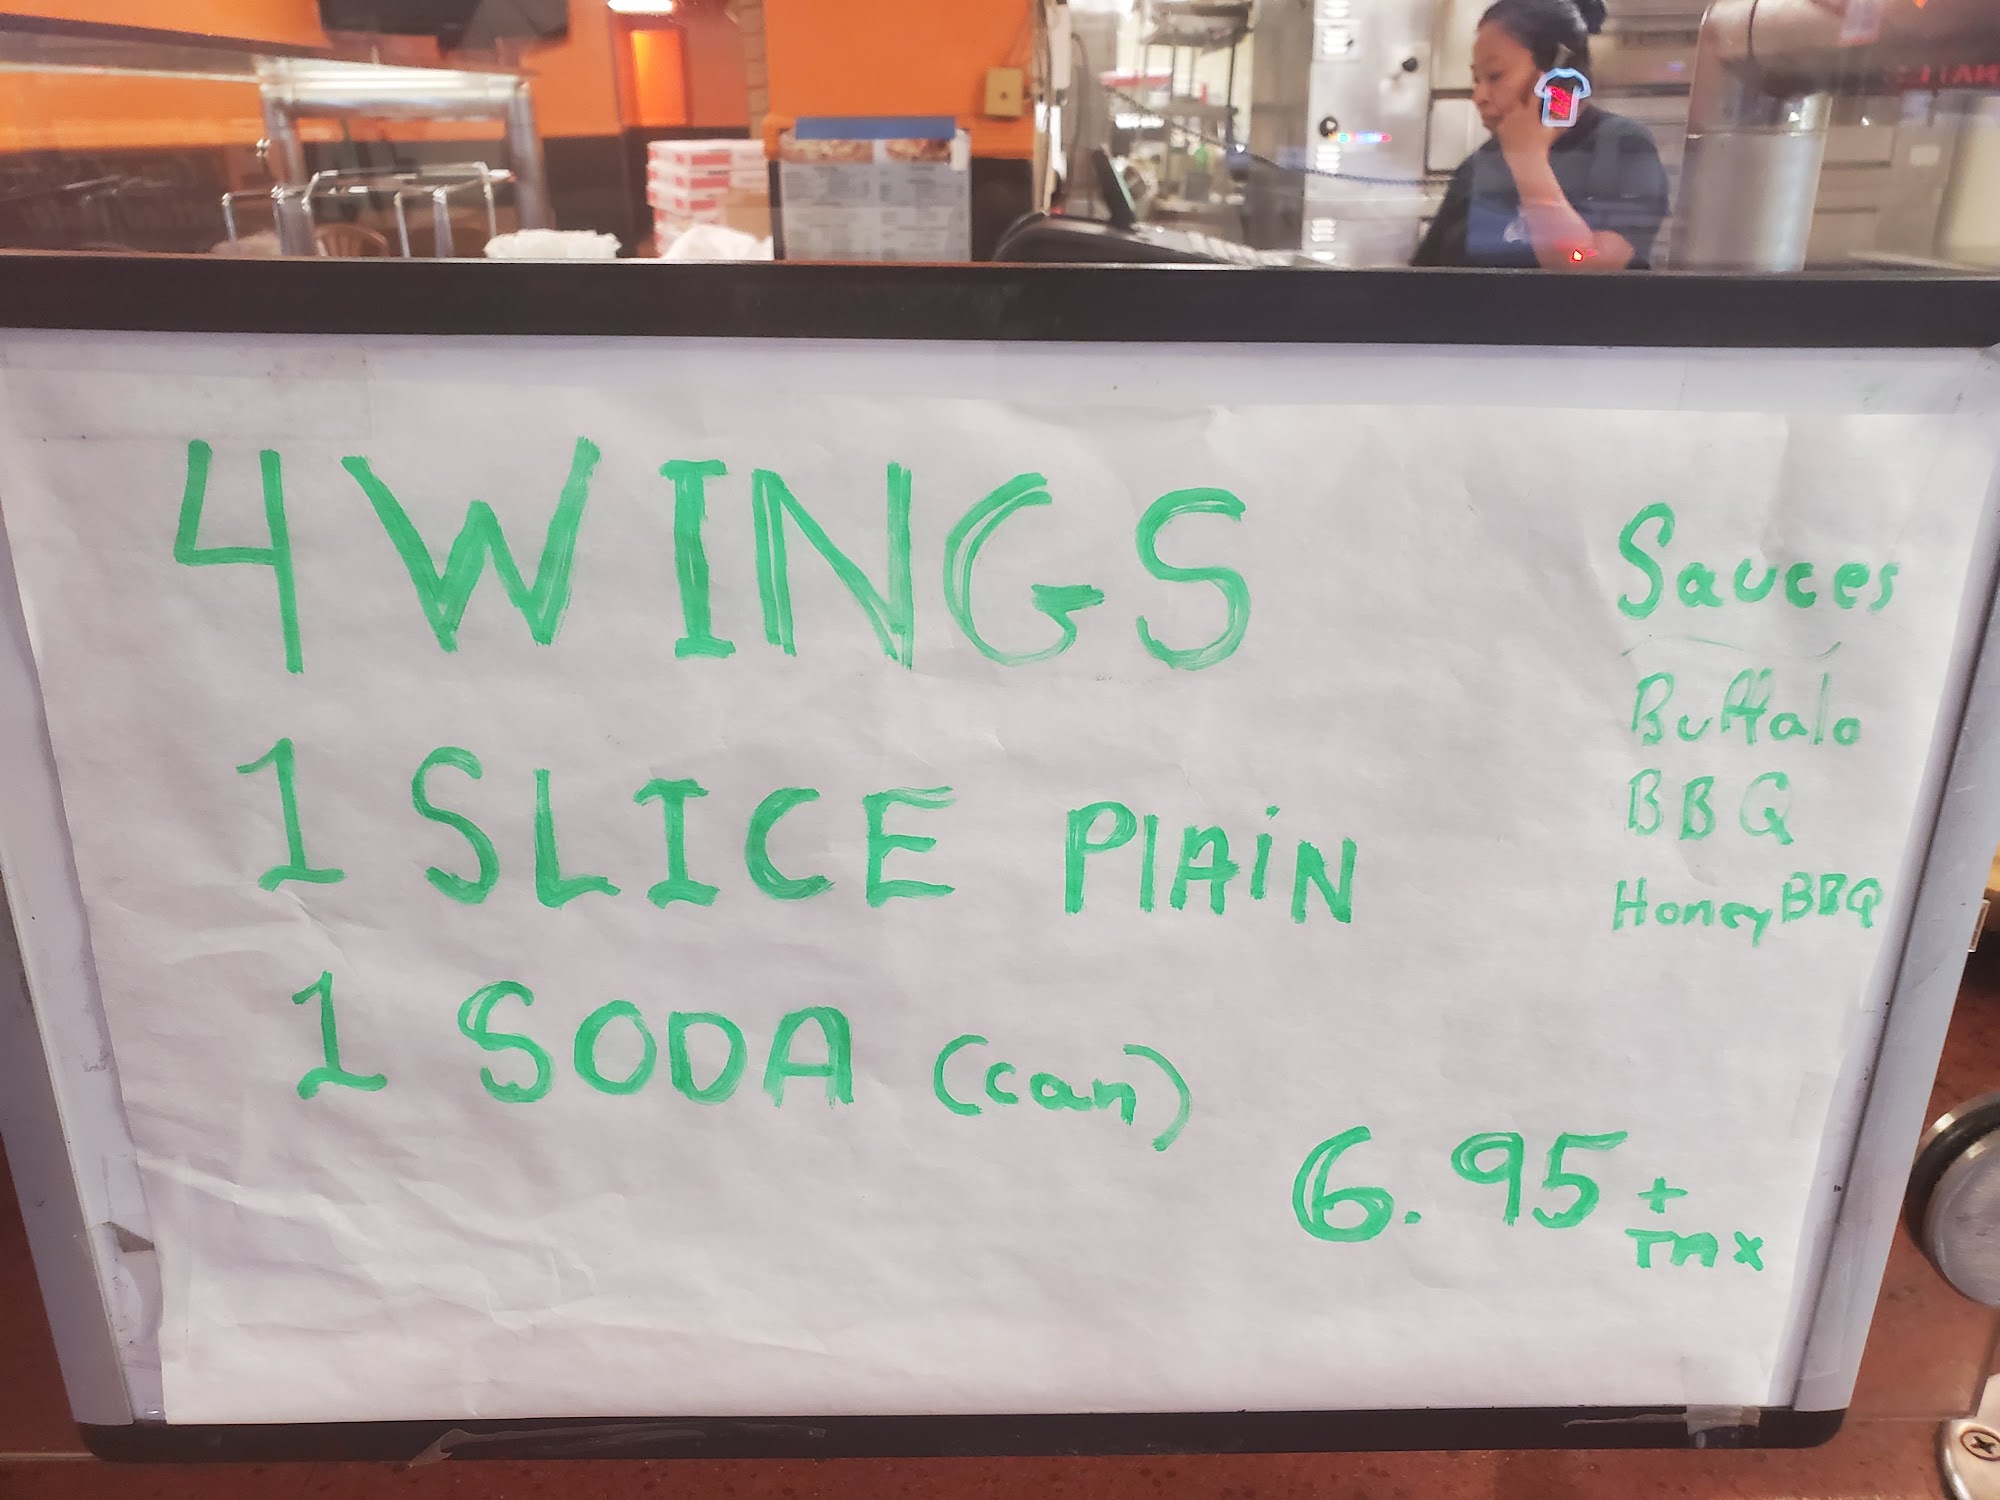 4 WINGS
1 SLICE PlAiN
1 SODA (can)
6.95 + Tax
Sauces
Buffalo
BBQ
Honey BBQ